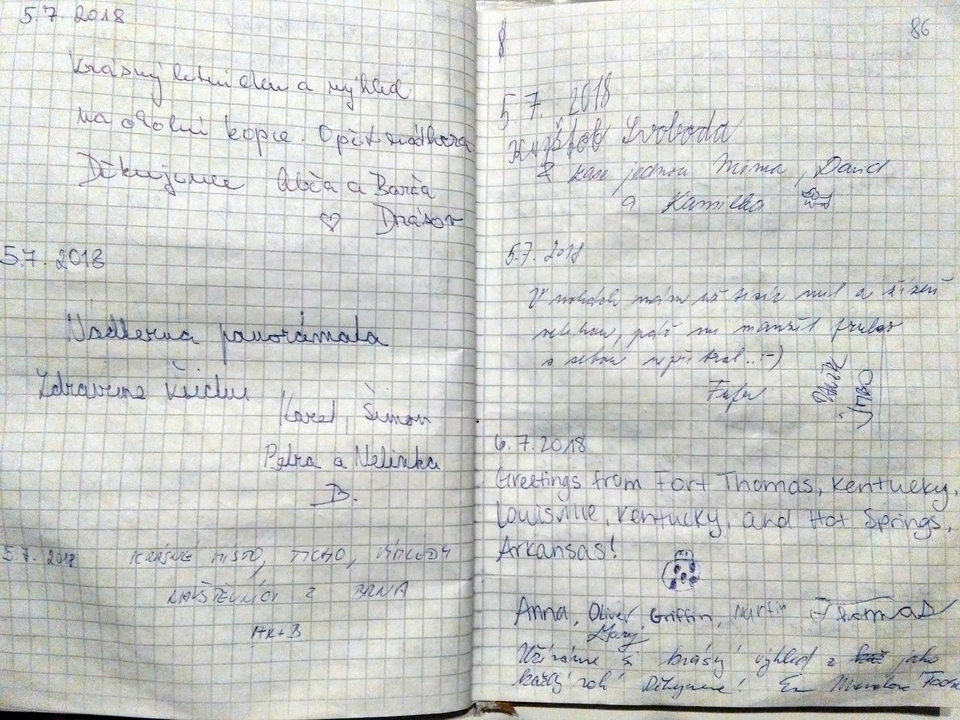 5.7. 2018
Krásný letní den a výhled
na okolní kopce. Opět nádhera
Děkujeme Áběa a Barča
Drásov
5.7. 2018
Nádherná panorámata
Zdravíme všichni
Karel, Šimon
Petra a Nelinka
B.
5.7. 2018 KRÁSNÉ MÍSTO, TICHO, VÝHLEDY
NÁVŠTĚVNÍCI Z BRNA
H+K+B
86
5 7. 2018
Kryštof Svoboda
zase jednou Mima, David
a Kamilka
5.7. 2018
V nohách mám už tisíc mil a žízeň
velekou, páč mi manžel
s sebou nepřibral..:-)
6.7.2018
Greetings from Fort Thomas, Kentucky,
Louisville, Kentucky, and Hot Springs,
Arkansas!
Anna, Oliver, Griffin, Martin Thomas
Mary
Užíváme si krásný výhled z jako
každý rok! Děkujeme!